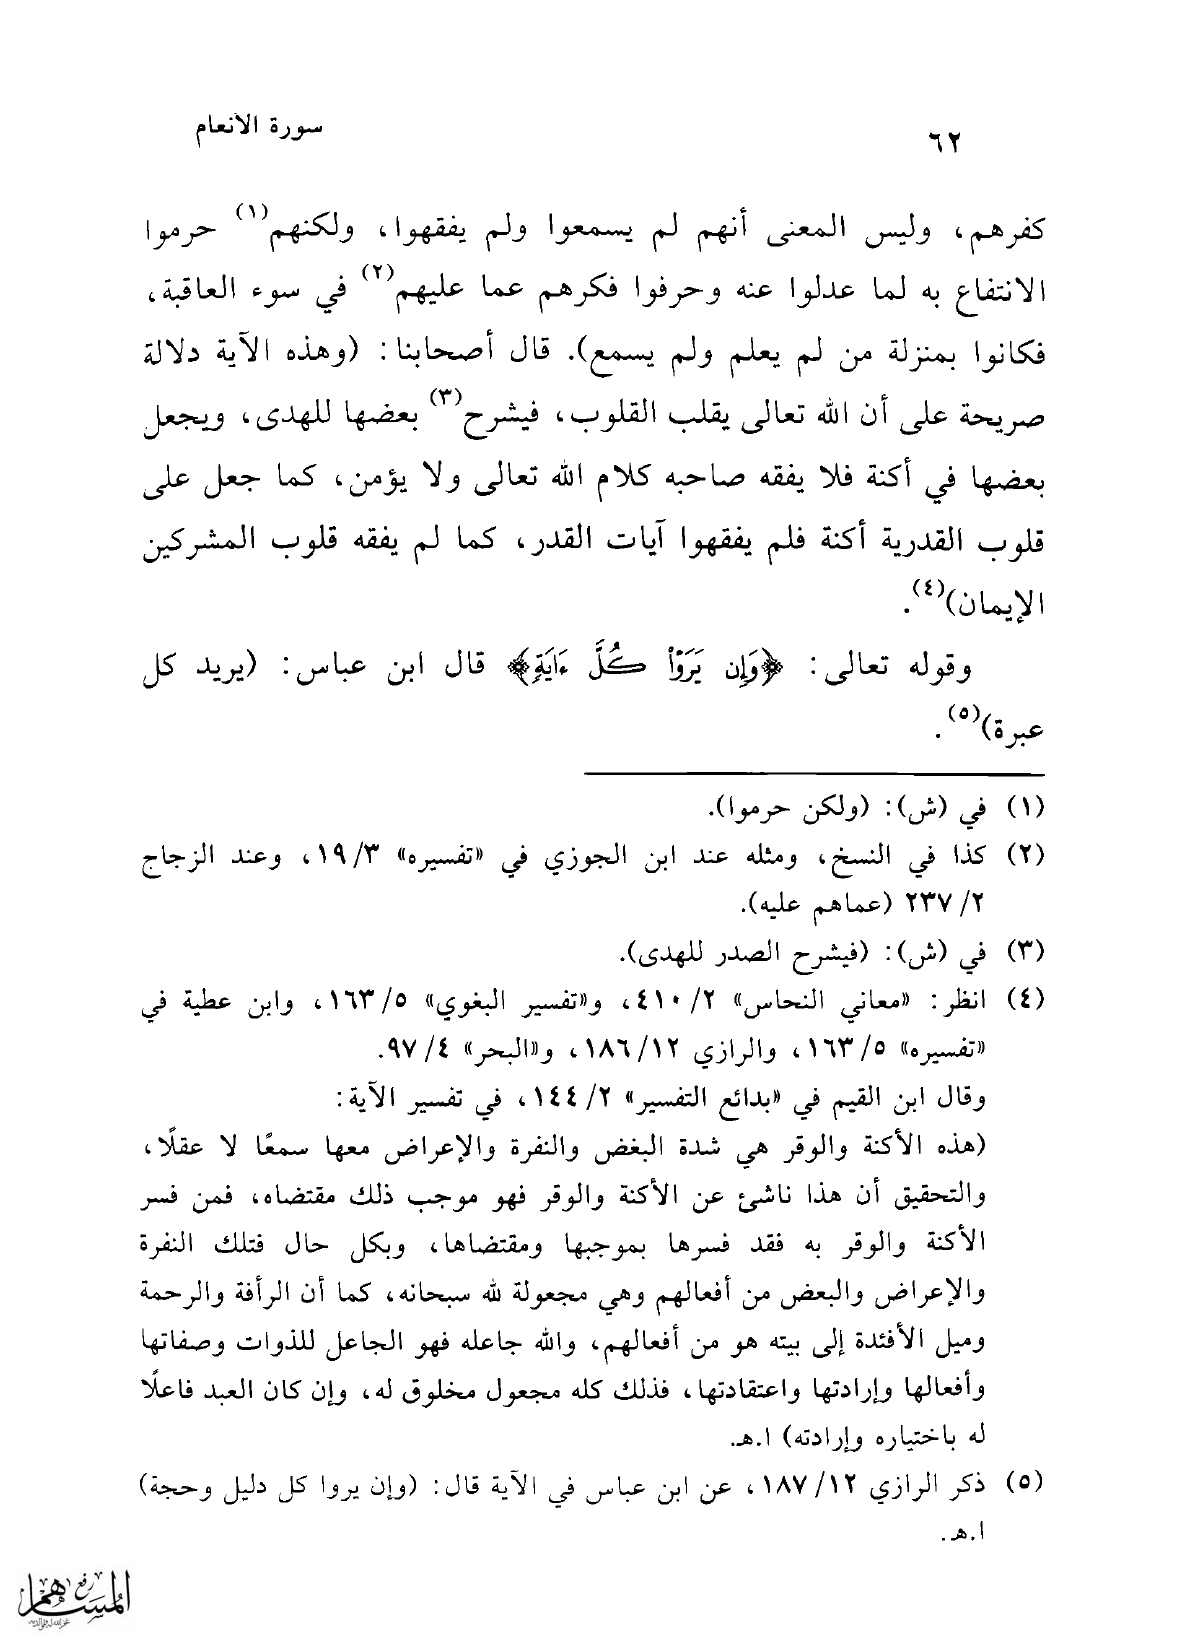 ٦٢
سورة الأنعام
كفرهم، وليس المعنى أنهم لم يسمعوا ولم يفقهوا، ولكنهم(١) حرموا
الانتفاع به لما عدلوا عنه وحرفوا فكرهم عما عليهم(٢) في سوء العاقبة،
فكانوا بمنزلة من لم يعلم ولم يسمع). قال أصحابنا: (وهذه الآية دلالة
صريحة على أن الله تعالى يقلب القلوب، فيشرح(٣) بعضها للهدى، ويجعل
بعضها في أكنة فلا يفقه صاحبه كلام الله تعالى ولا يؤمن، كما جعل على
قلوب القدرية أكنة فلم يفقهوا آيات القدر، كما لم يفقه قلوب المشركين
الإيمان)(٤).
وقوله تعالى: ﴿وَإِن يَرَوۡاْ كُلَّ ءَايَةٖ﴾ قال ابن عباس: (يريد كل
عبرة)(٥).
(١) في (ش): (ولكن حرموا).
(٢) كذا في النسخ، ومثله عند ابن الجوزي في «تفسيره» ١٩/٣، وعند الزجاج
٢٣٧/٢ (عماهم عليه).
(٣) في (ش): (فيشرح الصدر للهدى).
(٤) انظر: «معاني النحاس» ٤١٠/٢، و«تفسير البغوي» ١٦٣/٥، وابن عطية في
«تفسيره» ١٦٣/٥، والرازي ١٨٦/١٢، و«البحر» ٩٧/٤.
وقال ابن القيم في «بدائع التفسير» ١٤٤/٢، في تفسير الآية:
(هذه الأكنة والوقر هي شدة البغض والنفرة والإعراض معها سمعًا لا عقلًا،
والتحقيق أن هذا ناشئ عن الأكنة والوقر فهو موجب ذلك مقتضاه، فمن فسر
الأكنة والوقر به فقد فسرها بموجبها ومقتضاها، وبكل حال فتلك النفرة
والإعراض والبعض من أفعالهم وهي مجعولة لله سبحانه، كما أن الرأفة والرحمة
وميل الأفئدة إلى بيته هو من أفعالهم، والله جاعله فهو الجاعل للذوات وصفاتها
وأفعالها وإرادتها واعتقادتها، فذلك كله مجعول مخلوق له، وإن كان العبد فاعلًا
له باختياره وإرادته) ا.هـ.
(٥) ذكر الرازي ١٨٧/١٢، عن ابن عباس في الآية قال: (وإن يروا كل دليل وحجة)
ا.هـ.